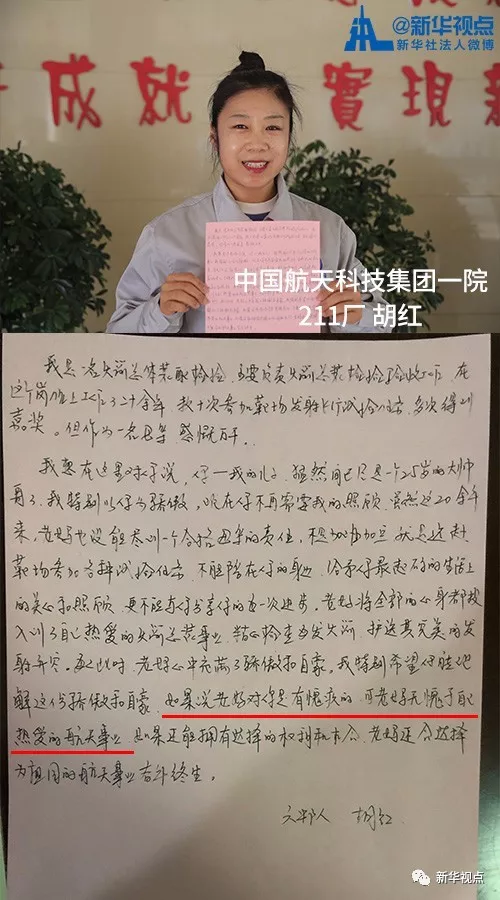 @新华视点
新华社法人微博
成就 實現新
中国航天科技集团一院
211厂 胡红
我是一名火箭总体装配检验，主要负责火箭总装检验验收工作，在
这个岗位上工作了二十余年，数十次参加靶场发射飞行试验任务，多次得到
嘉奖。但作为一名母亲，感慨万千。
我想在这里对你说，仔—我的儿子，虽然间已尽是一个25岁的大帅
哥了，我特别以仔为骄傲，现在仔不再需要我的照顾，虽然这20余年
来，老妈也没能尽到一个合格母亲的责任，不是加班加点就是远赴
靶场参加各种试验任务，不能陪在仔的身边，给予仔最起码的生活上
的关心和照顾，更不能与仔分享仔的每一次进步，老妈将全部的心身都投
入到了自己热爱的火箭总装事业，精心检查每发火箭，护送其完美的发
射升空。每此时老妈心中充满了骄傲和自豪。我特别希望仔能理
解这份骄傲和自豪，如果说老妈对你是有愧疚的，可老妈无愧于自己
热爱的航天事业，如果还能拥有选择的权利和机会，老妈还会选择
为祖国的航天事业奋斗终生。
六部人 胡红
新华视点